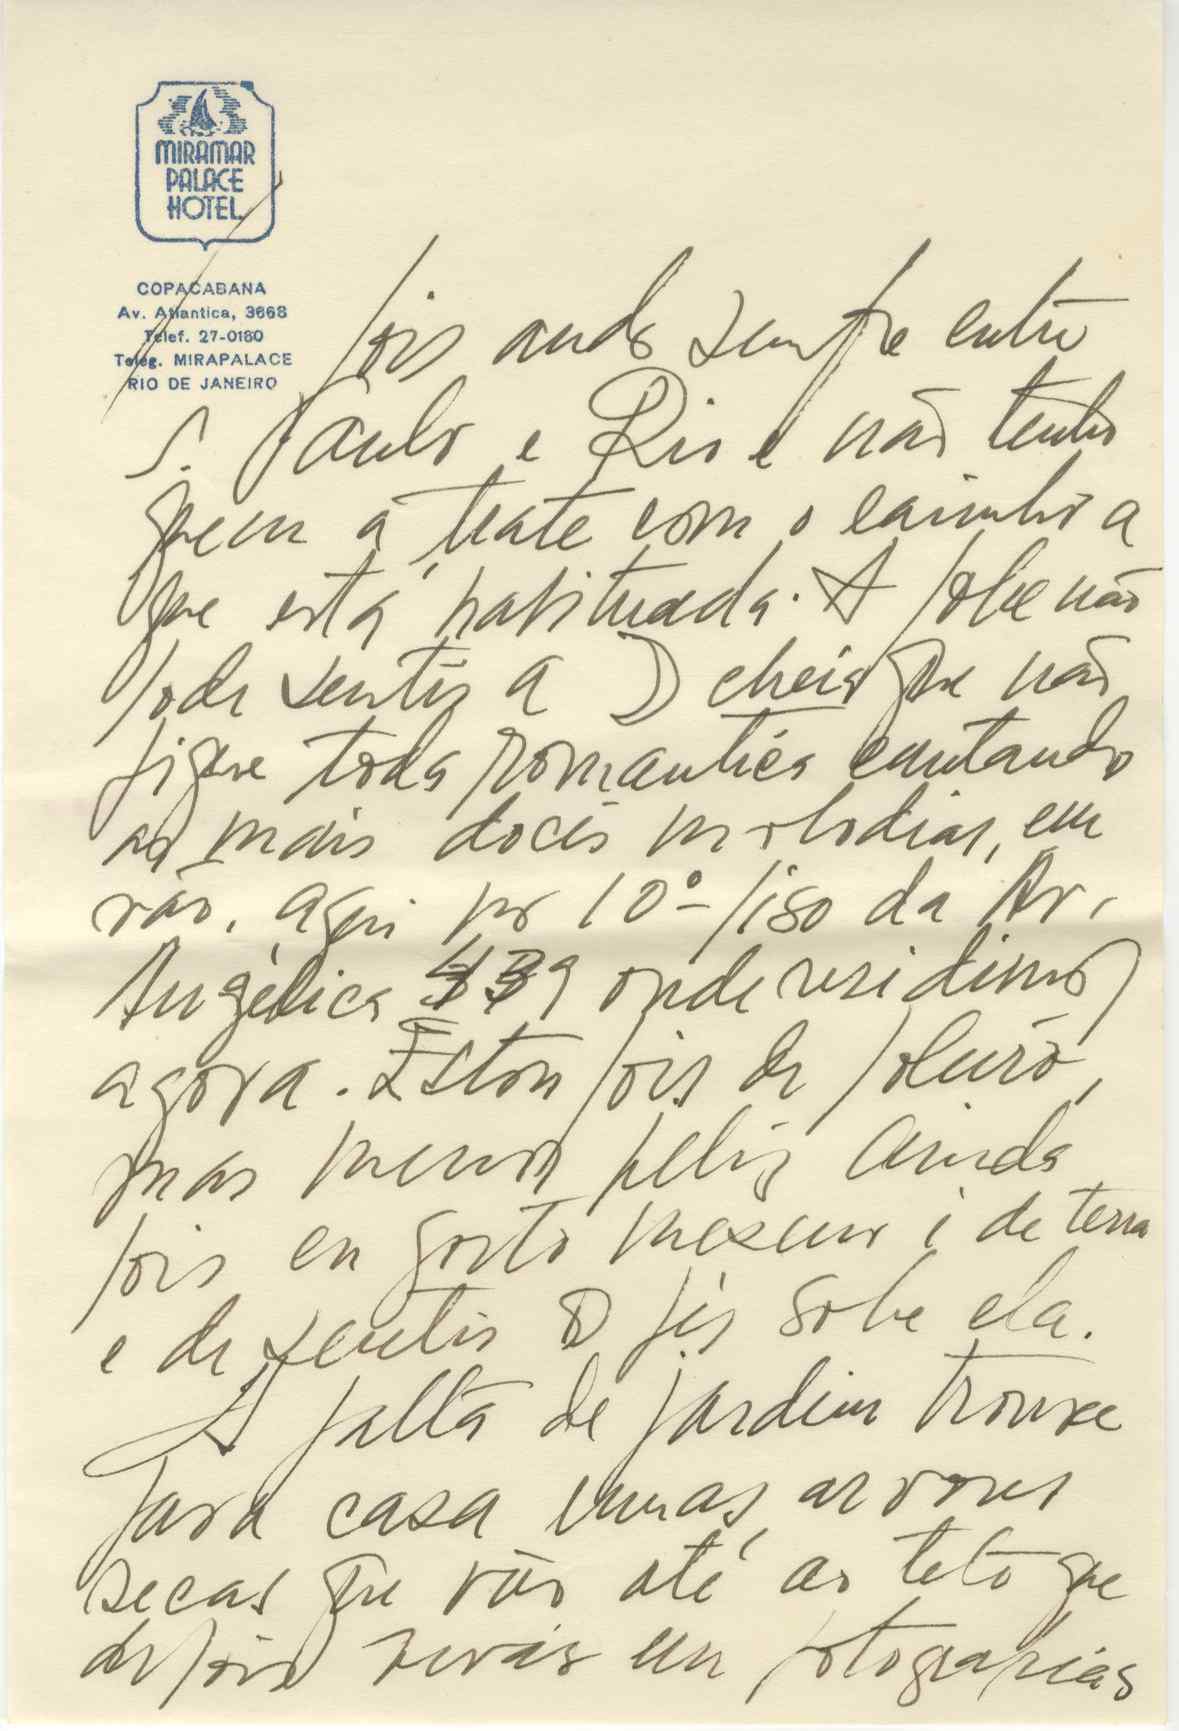 MIRAMAR
PALACE
HOTEL
COPACABANA
Av. Atlantica, 3668
Telef. 27-0180
Teleg. MIRAPALACE
RIO DE JANEIRO
pois ando sempre entre
S. Paulo e Rio e não tenho
quem a trate com o carinho a
que está habituada. A pobre não
pode sentir a D cheia que não
fique toda romantica cantando
as mais doces melodias, em
vão, aqui no 10º piso da Av.
Angélica onde residimos
agora. Estou pois de poleiro,
mas menos feliz ainda
pois eu gosto mesmo é de terra
e de sentir os pés sobre ela.
À falta de jardim trouxe
para casa umas arvores
secas que vão até ao teto que
depois verás em fotografias